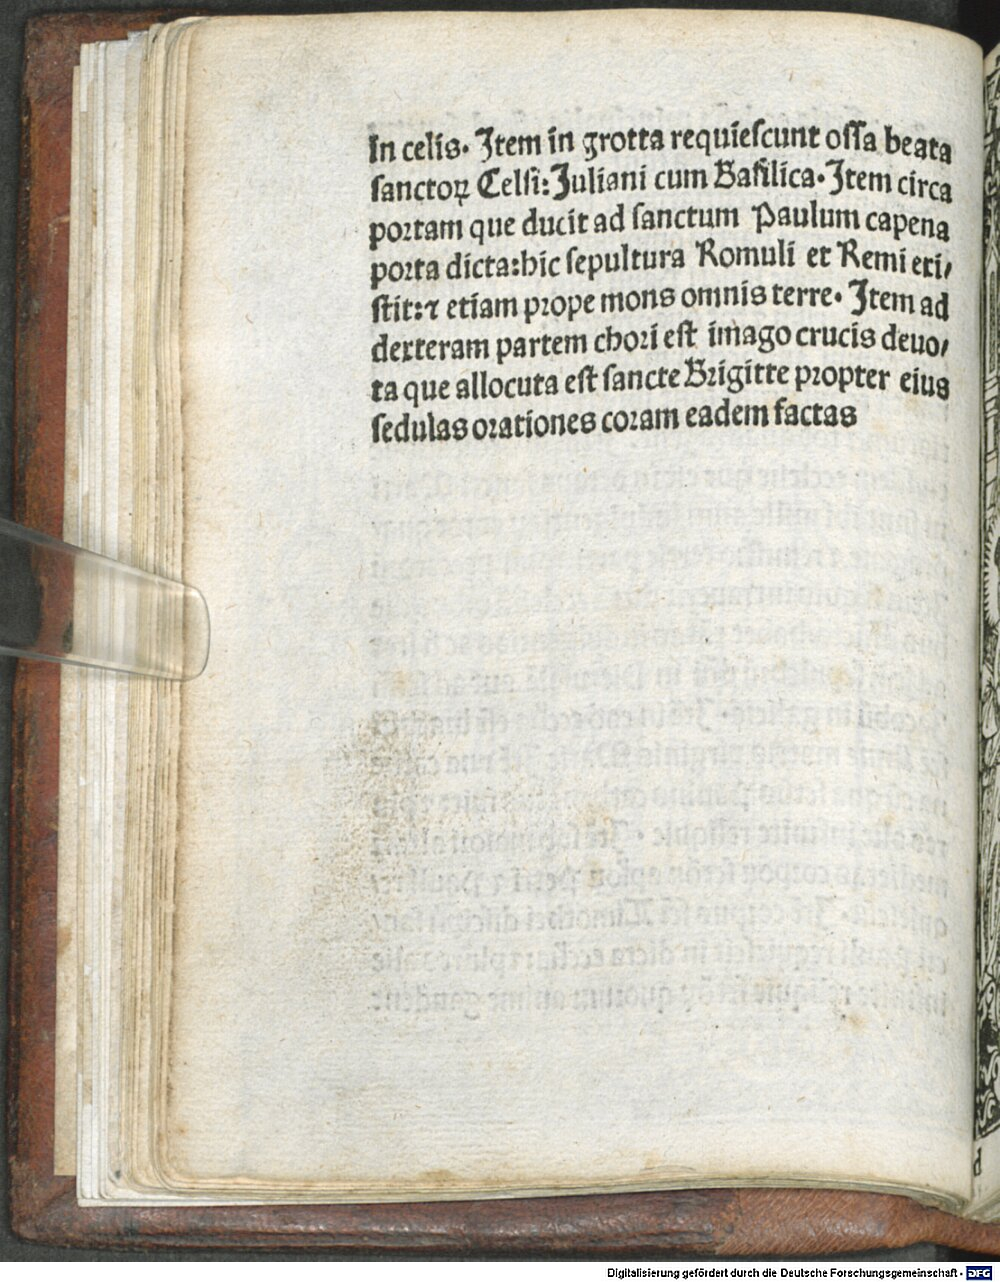 In celis. Item in grotta requiescunt ossa beata
sanctoꝝ Celsi: Juliani cum Basilica. Item circa
portam que ducit ad sanctum Paulum capena
porta dicta: hic sepultura Romuli et Remi exi/
stit: ⁊ etiam prope mons omnis terre. Item ad
dexteram partem chori est imago crucis deuo/
ta que allocuta est sancte Brigitte propter eius
sedulas orationes coram eadem factas
Digitalisierung gefördert durch die Deutsche Forschungsgemeinschaft - DFG